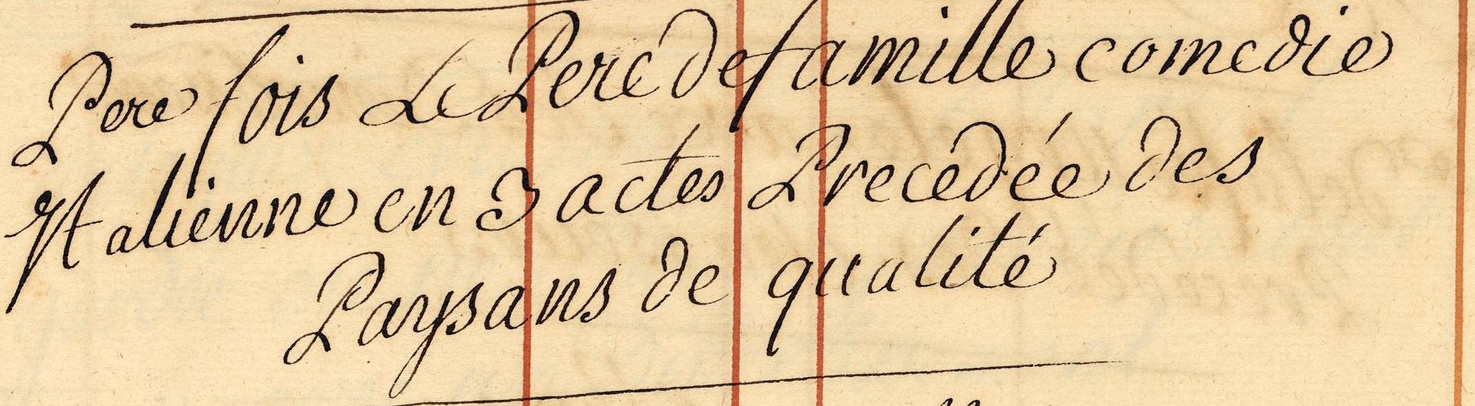 Pere fois Le Pere de famille comedie
Italienne en 3 actes Precedée des
Paysans de qualité